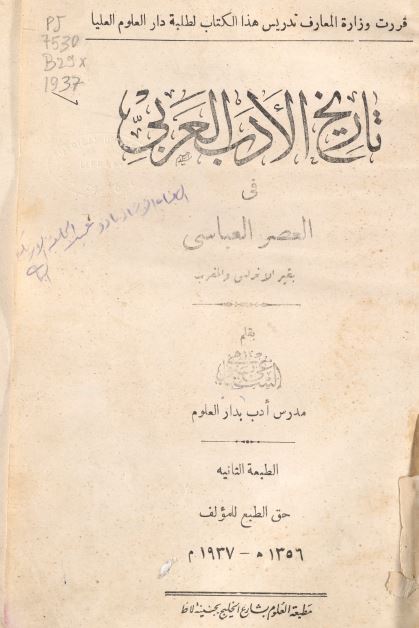 قررت وزارة المعارف تدريس هذا الكتاب لطلبة دار العلوم العليا
PJ
7530
B29x
1937
تاريخ الأدب العربي
فى
العصر العباسى
بغير الأندلس والمغرب
بقلم
السباعى
مدرس أدب بدار العلوم
الطبعة الثانيه
حق الطبع للمؤلف
١٣٥٦ ه - ١٩٣٧ م
مطبعة العلوم بشارع الخليج بجنينة لاظ